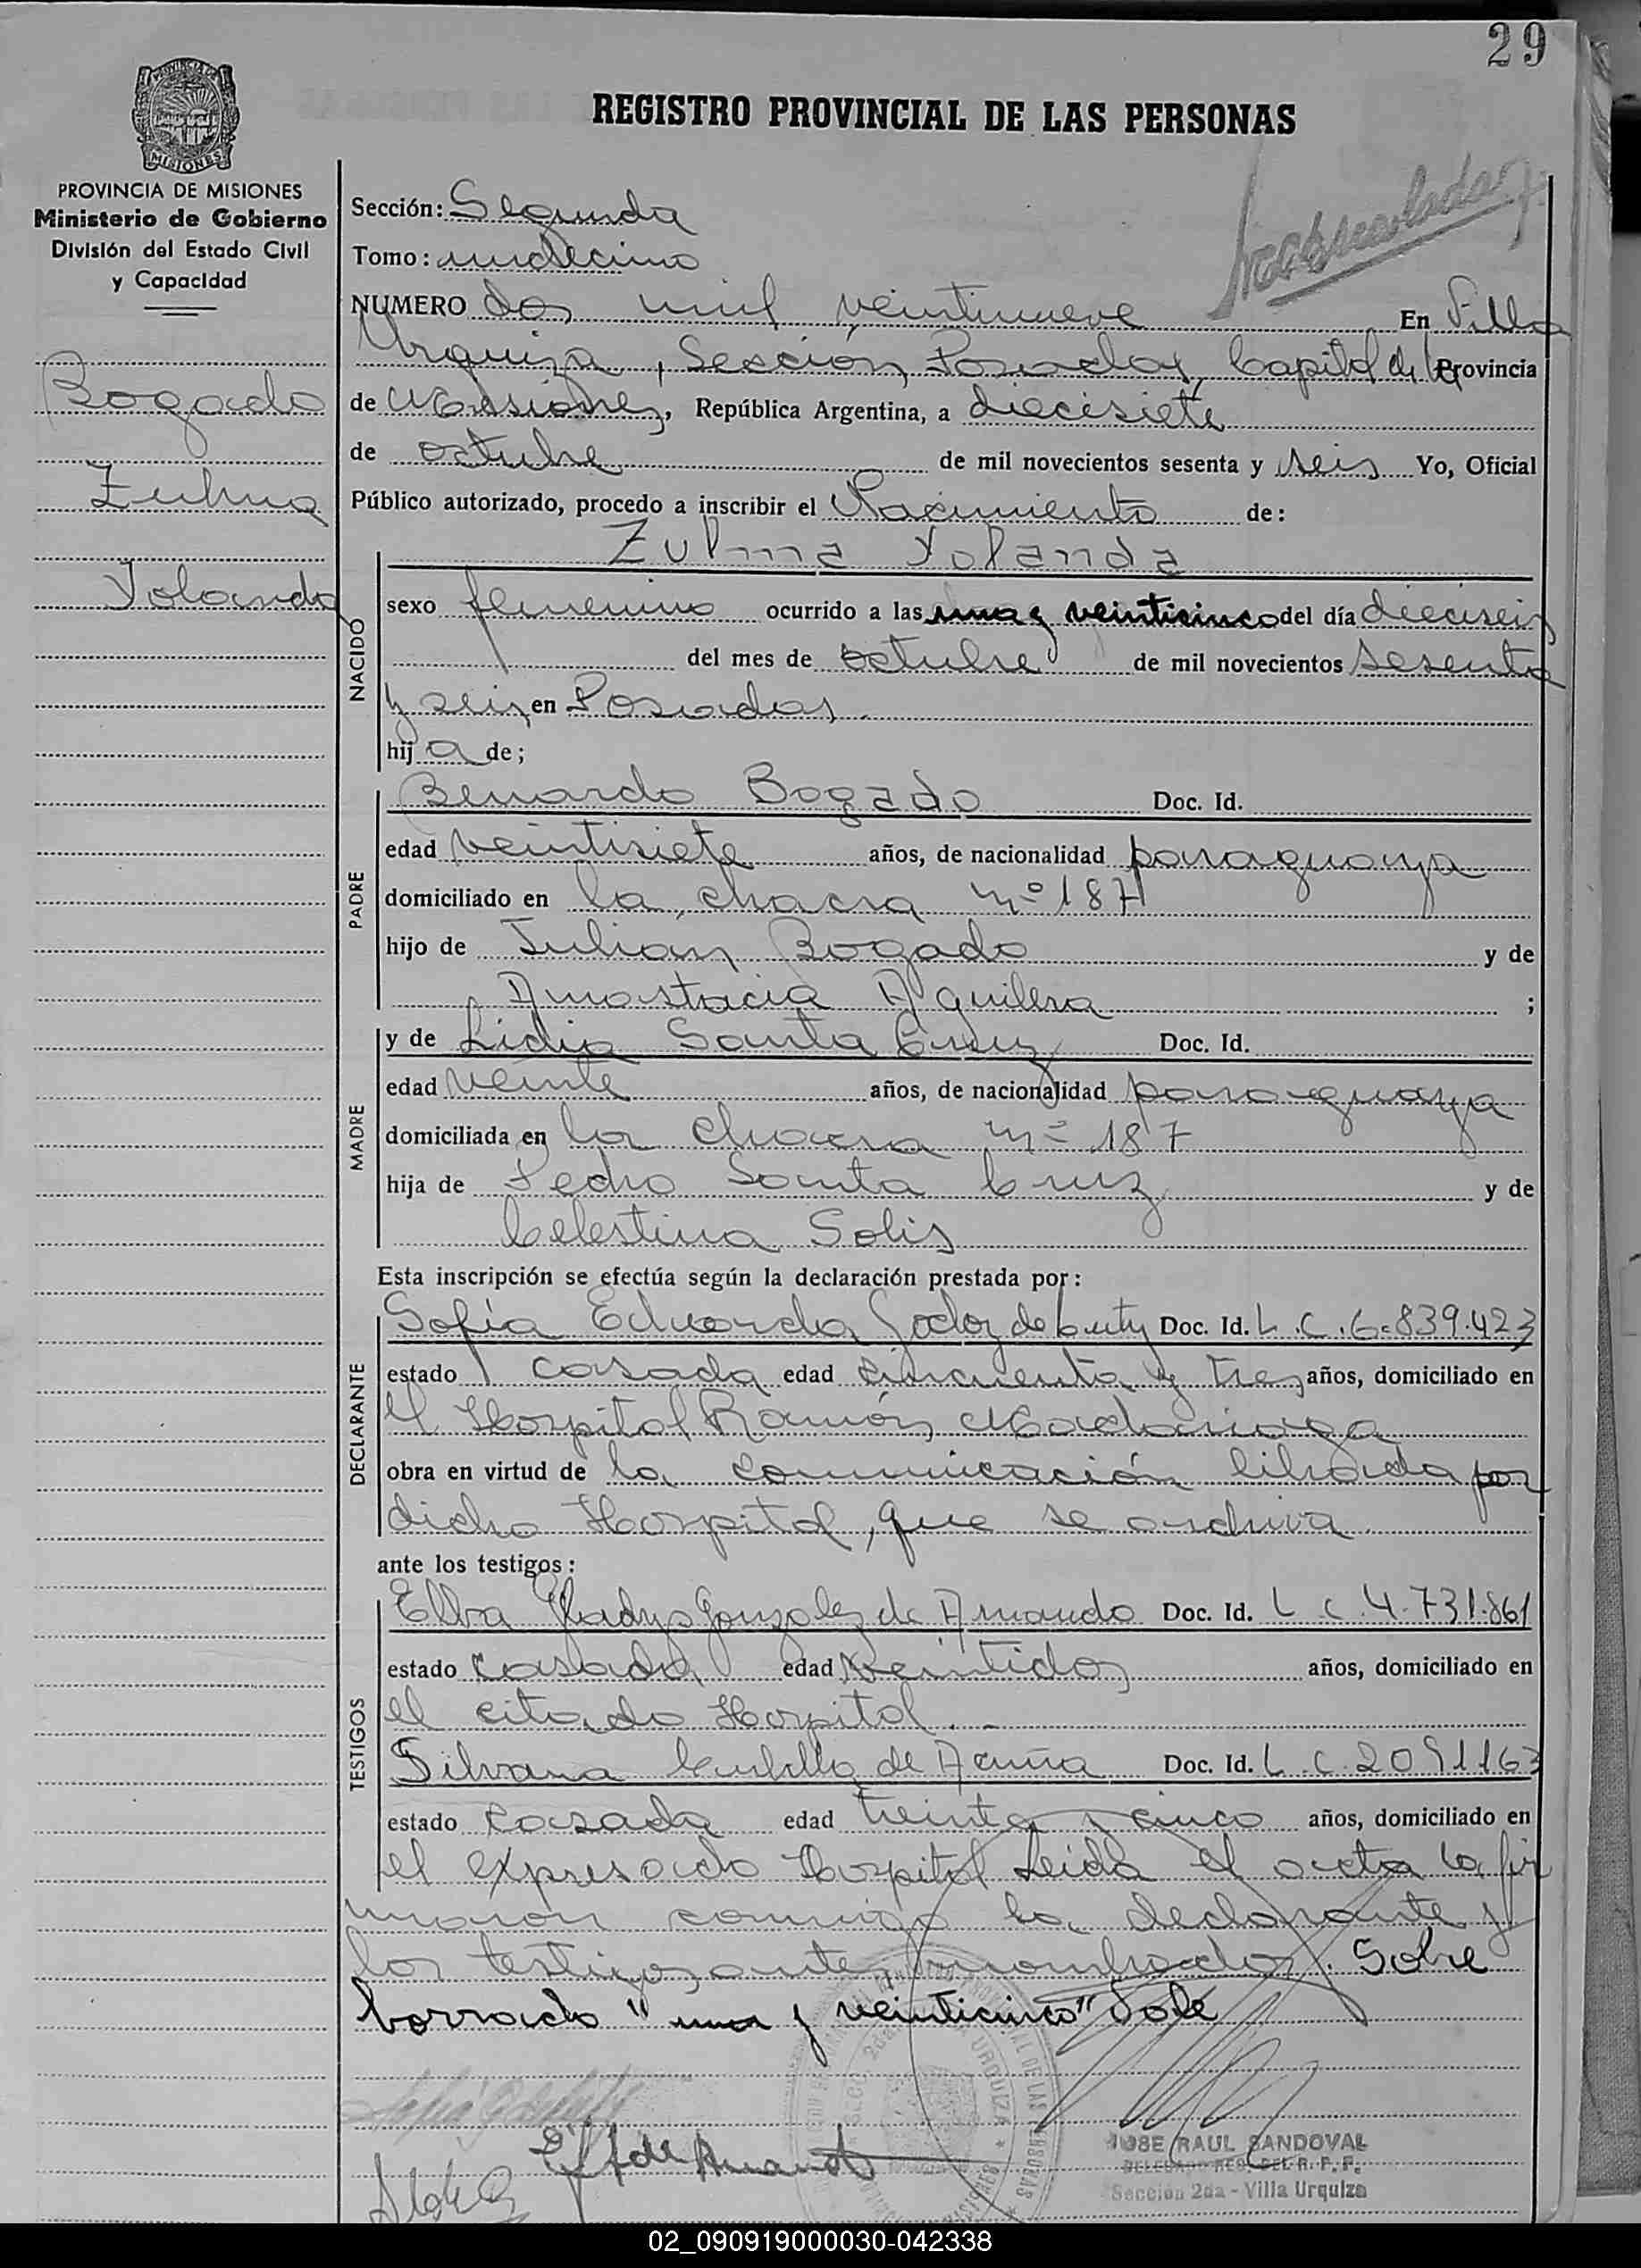 29
REGISTRO PROVINCIAL DE LAS PERSONAS
PROVINCIA DE MISIONES
Ministerio de Gobierno
División del Estado Civil
y Capacidad
Bogado
Zulma
Yolanda
Sección: Segunda
Tomo: undecimo
NUMERO dos mil veintinueve En Villa
Urquiza, Sección Posadas, Capital de la Provincia
de Misiones, República Argentina, a diecisiete
de octubre de mil novecientos sesenta y seis Yo, Oficial
Público autorizado, procedo a inscribir el Nacimiento de:
Zulma Yolanda
NACIDO
sexo femenino ocurrido a las una y veinticinco del día dieciseis
del mes de octubre de mil novecientos sesenta
y seis en Posadas
hija de;
PADRE
Bernardo Bogado Doc. Id.
edad veintisiete años, de nacionalidad paraguaya
domiciliado en la chacra nº 187
hijo de Julian Bogado y de
Anastacia Aguilera ;
MADRE
y de Lidia Santa Cruz Doc. Id.
edad veinte años, de nacionalidad paraguaya
domiciliada en la chacra nº 187
hija de Pedro Santa Cruz y de
Celestina Solis
Esta inscripción se efectúa según la declaración prestada por:
DECLARANTE
Sofía Eduarda Godoy de Doc. Id. L.C. 6.839.423
estado casada edad cincuenta y tres años, domiciliado en
el Hospital Ramón Madariaga
obra en virtud de la comunicación librada por
dicho Hospital, que se archiva
ante los testigos:
TESTIGOS
Elba Gladys Gonzalez de Amando Doc. Id. L C 4.731.861
estado casada edad veintidos años, domiciliado en
el citado Hospital.
Silvana de Acuña Doc. Id. L.C. 2091163
estado casada edad treinta y cinco años, domiciliado en
el expresado Hospital Leida el acta la fir
maron conmigo la declarante y
los testigos antes nombrados. Sobre
borrado "una y veinticinco" Vale
JOSE RAUL SANDOVAL
Sección 2da - Villa Urquiza
02_090919000030-042338